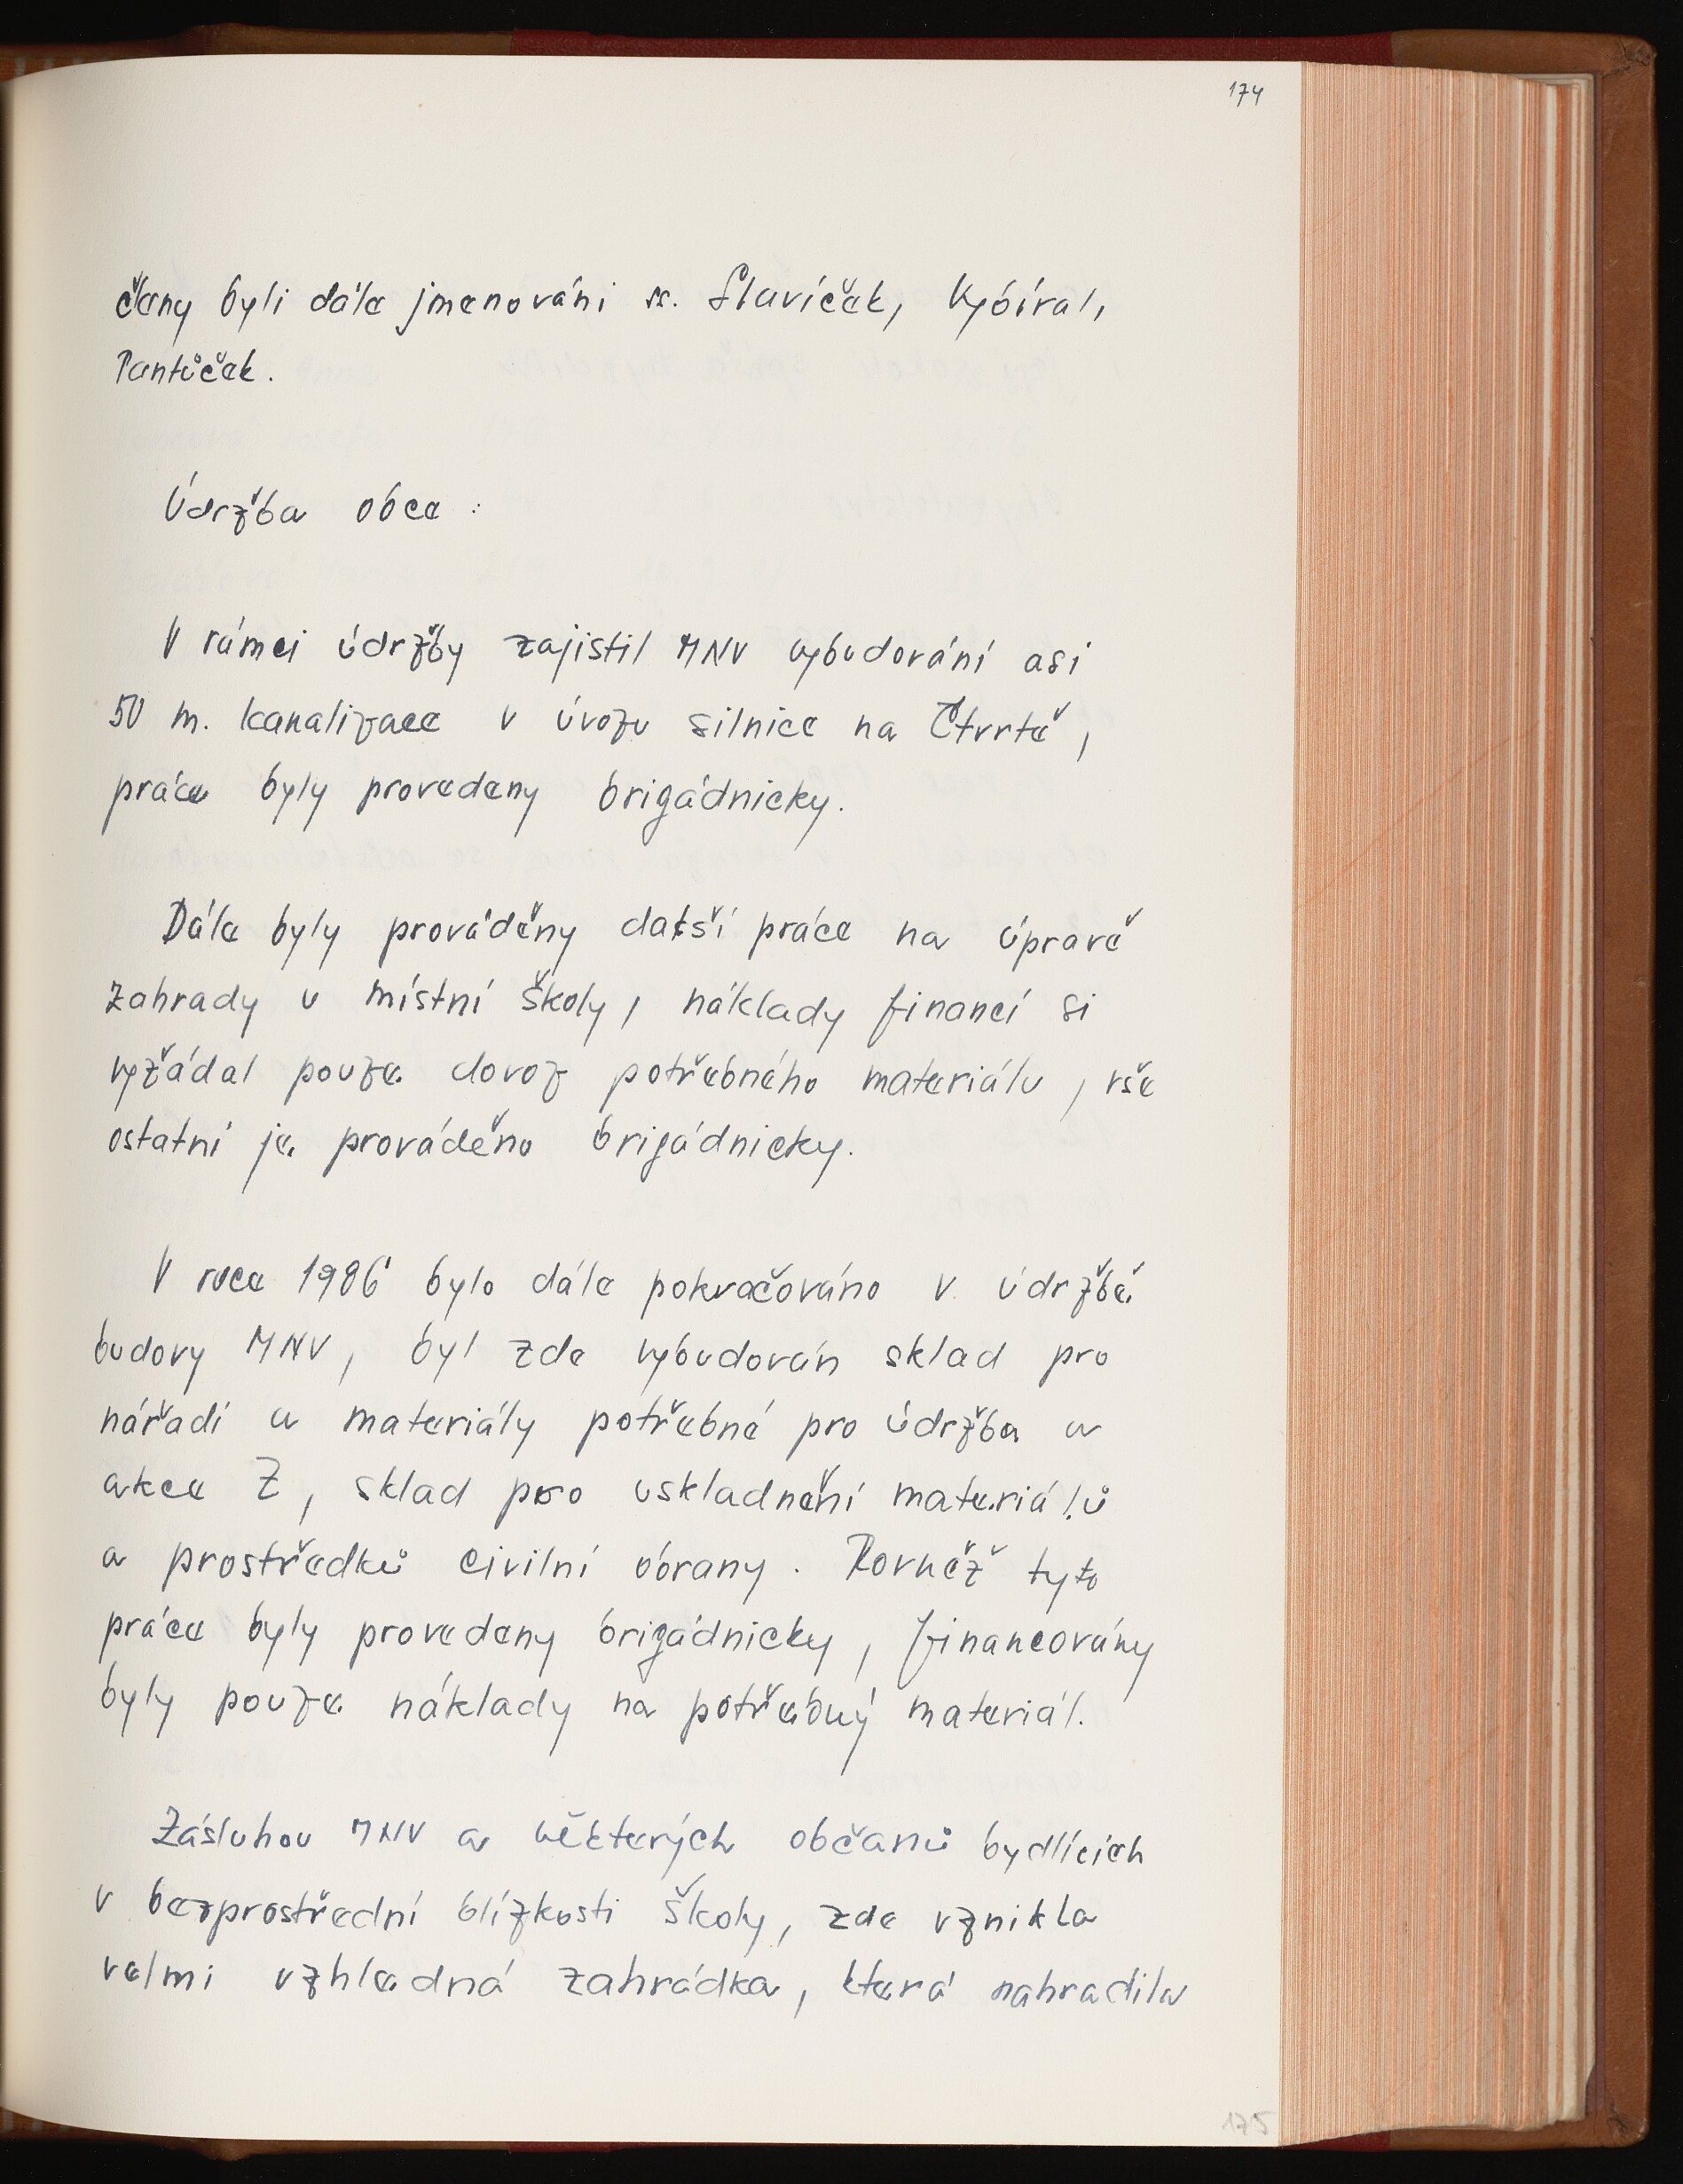 174
členy byli dále jmenováni ss. Slavíček, Vybíral,
Pantůček.
Údržba obce :
V rámci údržby zajistil MNV vybudování asi
50 m. kanalizace v úvozu silnice na Čtvrtě,
práce byly provedeny brigádnicky.
Dále byly prováděny další práce na úpravě
zahrady u místní školy, náklady financí si
vyžádal pouze dovoz potřebného materiálu, vše
ostatní je prováděno brigádnicky.
V roce 1986 bylo dále pokračováno v údržbě
budovy MNV, byl zde vybudován sklad pro
nářadí a materiály potřebné pro údržba a
akce Z, sklad pro uskladnění materiálů
a prostředků civilní obrany. Rovněž tyto
práce byly provedeny brigádnicky, financovány
byly pouze náklady na potřebný materiál.
Zásluhou MNV a některých občanů bydlících
v bezprostřední blízkosti školy, zde vznikla
velmi vzhledná zahrádka, která nahradila
175